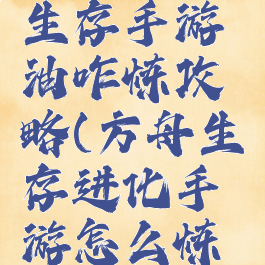 生存手游
油咋炼攻
略(方舟生
存进化手
游怎么炼